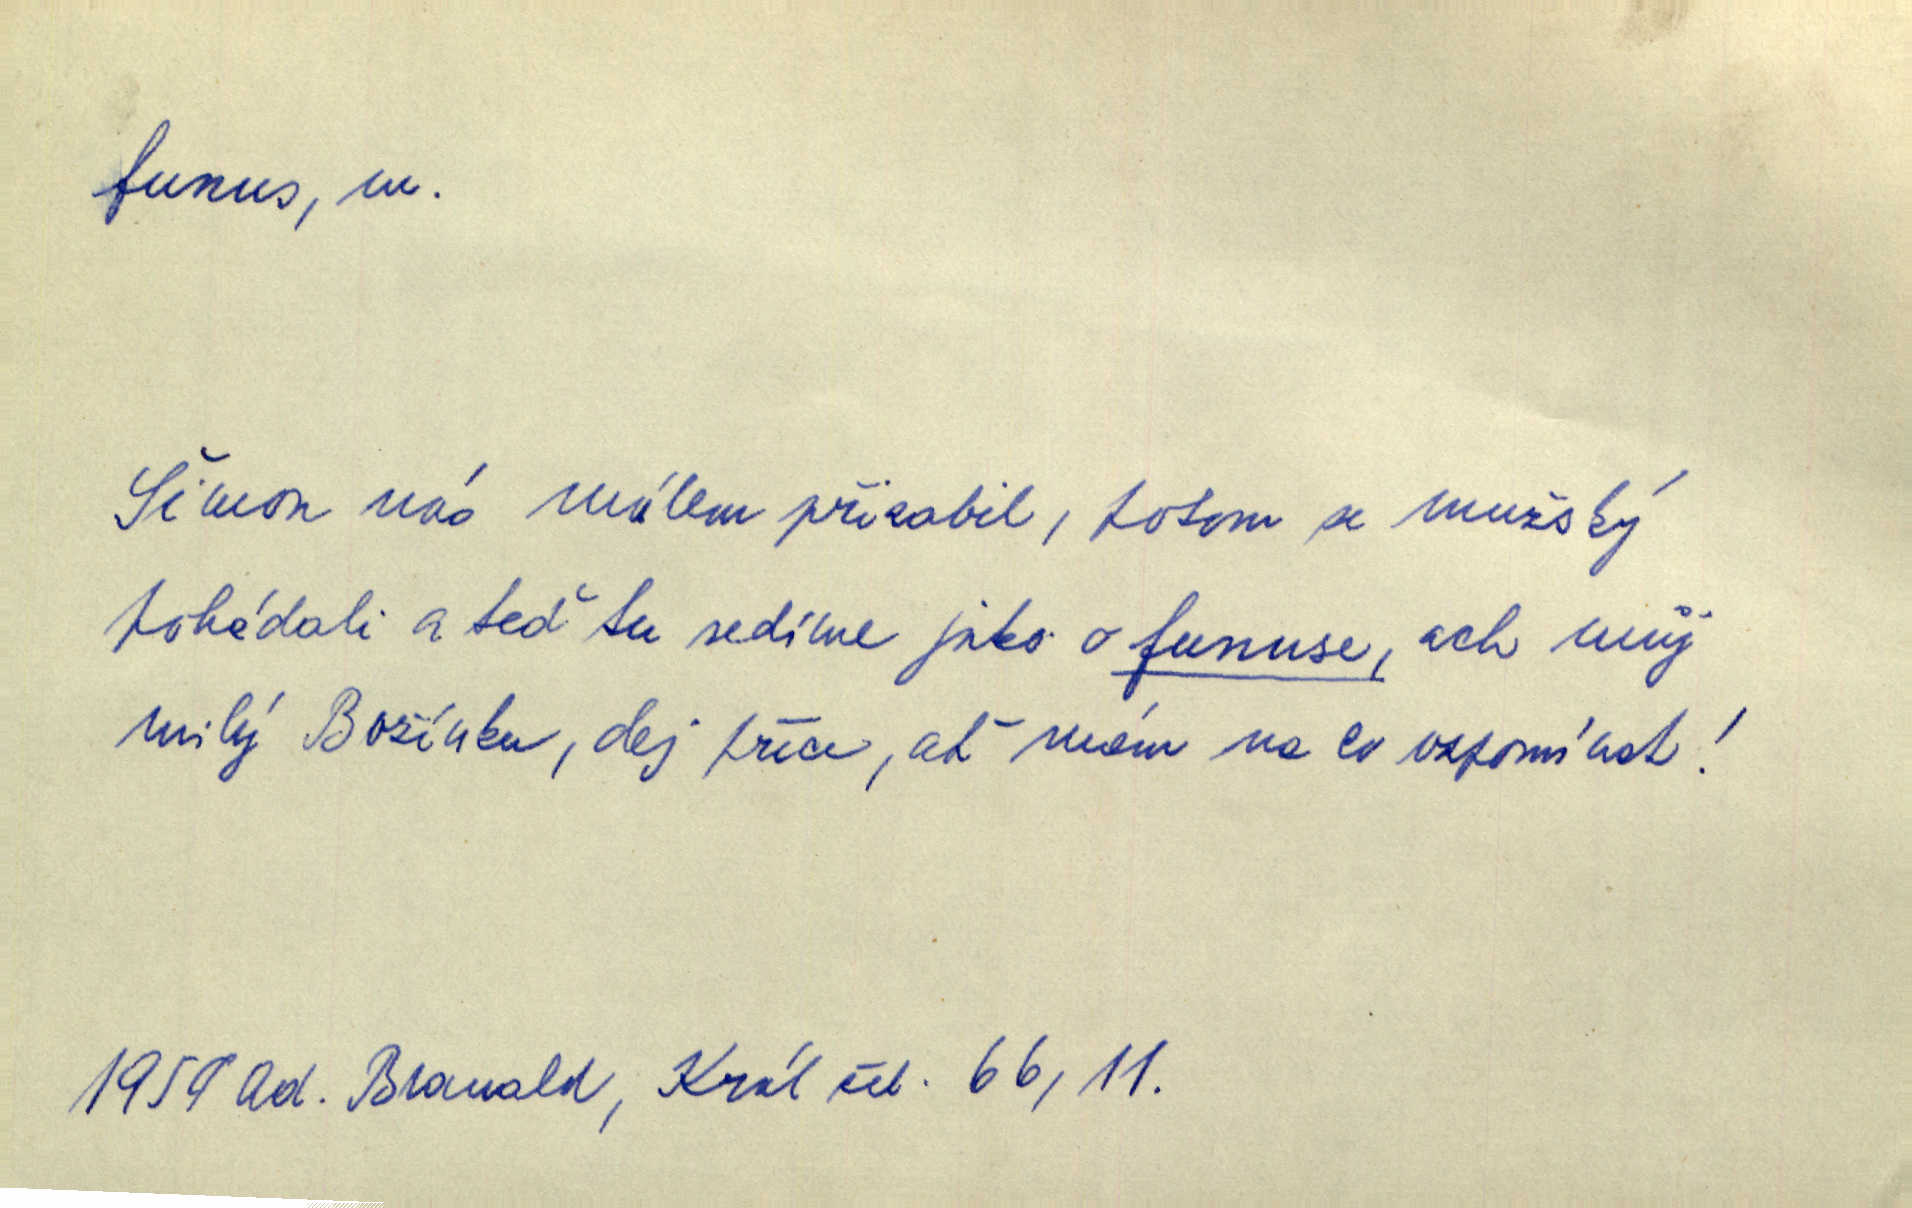 funus, m.
Šimon nás málem přizabil, potom se mužský
pohádali a teď tu sedíme jako o funuse, ach můj
milý Božínku, dej píce, ať mám na co vzpomínat!
1959 Ad. Branald, Král žel. 66, 11.